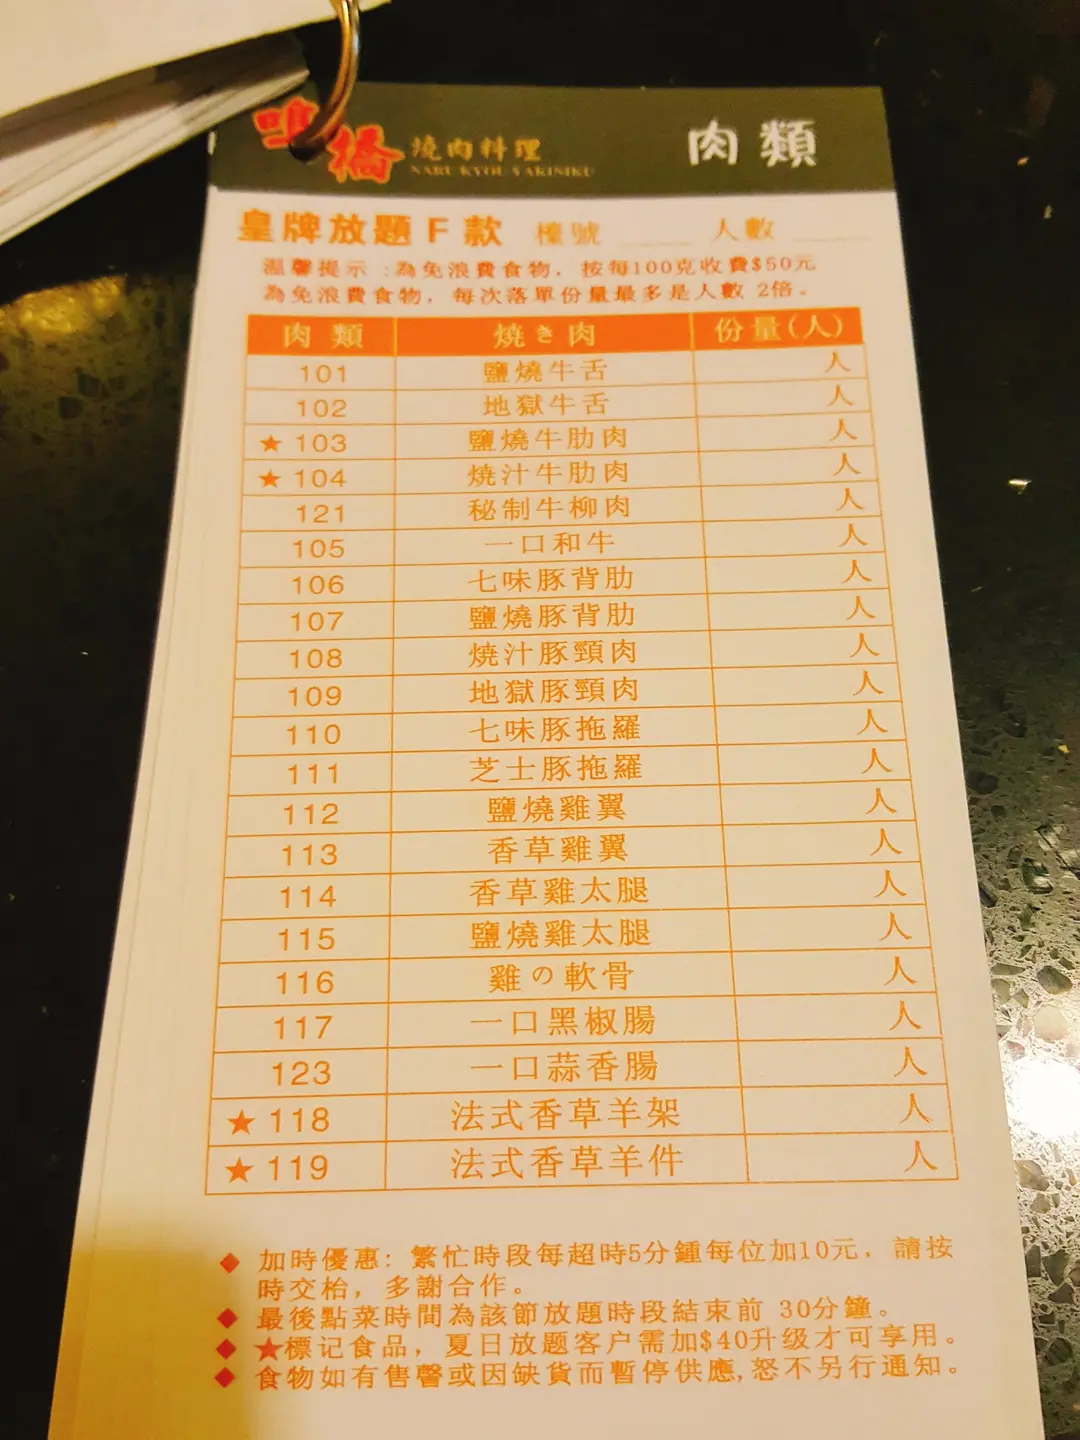 鳴橋 燒肉料理 肉類
NARU KYOU YAKINIKU
皇牌放題 F 款 檯號 ____ 人數 ____
溫馨提示:為免浪費食物，按每100克收費$50元
為免浪費食物，每次落單份量最多是人數 2倍。
肉類 燒き肉 份量(人)
101 鹽燒牛舌 人
102 地獄牛舌 人
★ 103 鹽燒牛肋肉 人
★ 104 燒汁牛肋肉 人
121 秘制牛柳肉 人
105 一口和牛 人
106 七味豚背肋 人
107 鹽燒豚背肋 人
108 燒汁豚頸肉 人
109 地獄豚頸肉 人
110 七味豚拖羅 人
111 芝士豚拖羅 人
112 鹽燒雞翼 人
113 香草雞翼 人
114 香草雞太腿 人
115 鹽燒雞太腿 人
116 雞の軟骨 人
117 一口黑椒腸 人
123 一口蒜香腸 人
★ 118 法式香草羊架 人
★ 119 法式香草羊件 人
◆ 加時優惠: 繁忙時段每超時5分鍾每位加10元，請按
時交枱，多謝合作。
◆ 最後點菜時間為該節放題時段結束前 30分鐘。
◆ ★標记食品，夏日放题客户需加$40升级才可享用。
◆ 食物如有售馨或因缺貨而暫停供應,怒不另行通知。